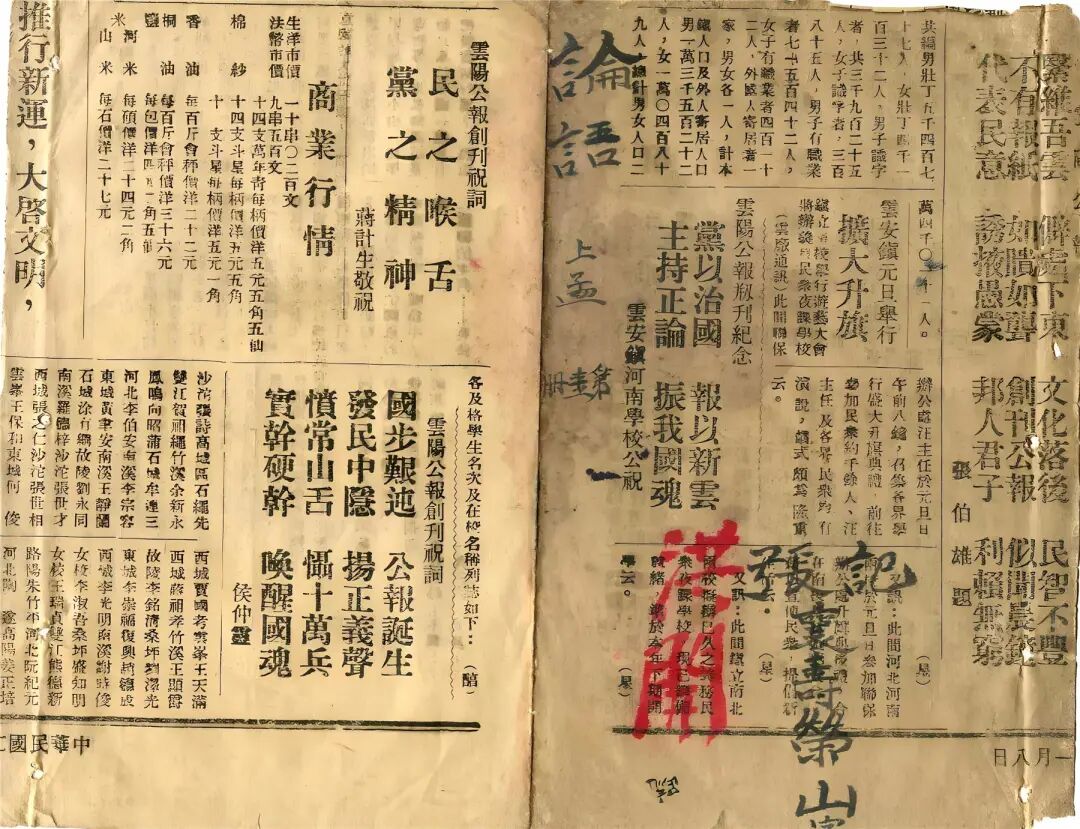 緊維吾雲 僻處下東 文化落後 民智不豐
不有報紙 如瞶如聾 創刊公報 似聞晨鐘
代表民意 誘掖愚蒙 邦人君子 利賴無窮
張伯雄題
共編男壯丁五千四百七
十七人,女壯丁四千一
百三十二人,男子識字
者共三千九百二十五
人,女子識字者,三百
八十五人,男子有職業
者七千五百四十二人,
女子有職業者四百一十
二人,外感人寄居者一
家,男女各一人,共計本
鎮人口及外人寄居人口
男一萬三千五百二十二
人,女一萬〇四百八十
九人,總計男女人口二
萬四千〇一十一人。
雲安鎮元旦舉行
擴大升旗
辦公處汪主任於元旦日
午前八鐘,召集各界舉
行盛大升旗典禮,前往
參加民衆約千餘人,汪
主任及各界民衆均有
演說,儀式頗為隆重
云。
又訊:此間河北河南
(雲廠通訊)此間聯保
鎮立各校舉行遊藝大會
將辦獎民衆夜課學校
又訊:此間鎮立南北
學云。(星)
雲陽公報創刊紀念
黨以治國 報以新雲
主持正論 振我國魂
雲安鎮河南學校公祝
一月八日
論語
上孟
第壹冊
洪開
記
張雲壽榮
雲陽公報創刊祝詞
民之喉舌
黨之精神
蔣計生敬祝
商業行情
生洋市價 一十串〇二百文
法幣市價 九串五百文
棉紗 十四支萬年青每柄價洋五元五角五仙
十四支斗星每柄價洋五元五角
十支斗星每柄價洋五元一角
香油 每百斤會秤價洋二十二元
桐油 每百斤會秤價洋三十六元
鹽 每包價洋四元二角五仙
河米 每碩價洋二十四元二角
山米 每石價洋二十七元
推行新運,大啓文明,
各及格學生名次及在校名稱列誌如下:(醋)
雲陽公報創刊祝詞
國步艱迍 公報誕生
發民中隱 揚正義聲
憤常山舌 懾十萬兵
實幹硬幹 喚醒國魂
侯仲靈
沙沱張詩高城區石繩先
雙江賀祖繩竹溪余新永
鳳鳴向昭蒲石城牟達三
河北李伯安南溪李宗容
東城黃聿安南溪王靜蘭
石城涂有繩故陵劉永同
南溪羅德梓沙沱張世才
西城張之仁沙沱張世相
雲峯王保和東城何 俊
西城賈國考雲峯王天滿
西城蔣祖孝竹溪王顯爵
故陵李銘清桑坪劉澤光
東城李崇福復興趙德成
西城李光明南溪謝時俊
女校李淑吾桑坪盛知明
女校王瑞貞雙江熊德新
路陽朱竹平河北阮紀元
河北陶 遂高陽姜正培
中華民國